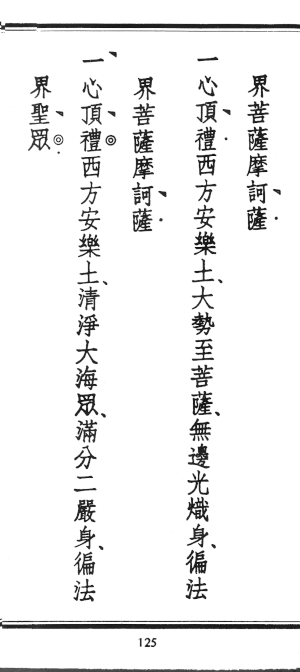 界菩薩摩訶薩
一心頂禮西方安樂土、大勢至菩薩、無邊光熾身、徧法
界菩薩摩訶薩
一心頂禮西方安樂土、清淨大海眾、滿分二嚴身、徧法
界聖眾
125